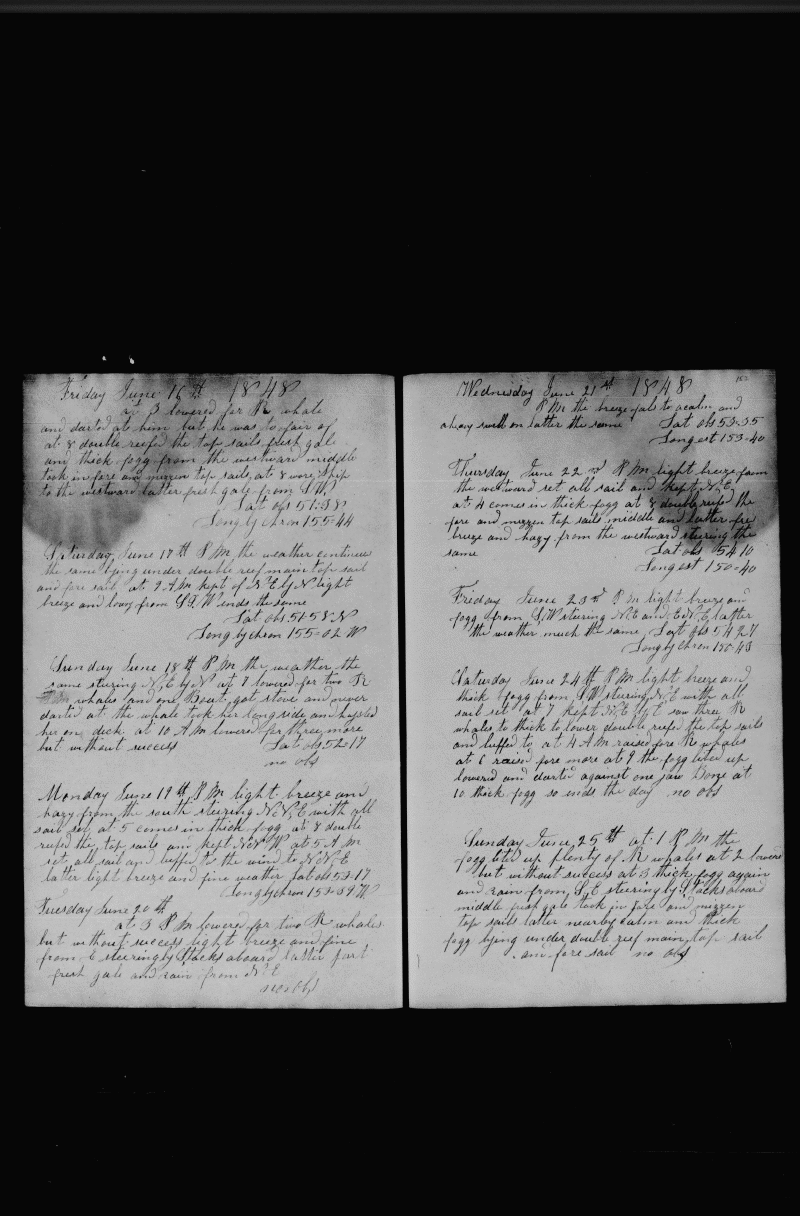 Friday June 16th 1848
at 3 lowered for R whale
and darted at him but he was to fair of
at 8 double reefed the top sails fresh gale
and thick fogg from the westward middle
took in fore and mizzen top sails at 8 wore ship
to the westward latter fresh gale from S W
Lat obs 51=38
Long by chron 155-44
Saturday June 17th P M the weather continues
the same lying under double reef main top sail
and fore sail at 9 A M kept of N E by N light
breeze and hazy from S S W ends the same
Lat obs 51-58 N
Long by chron 155-02 W
Sunday June 18th P M the weather the
same steering N E by N at 7 lowered for two R
whales and one Boat got stove and never
darted at the whale took her longside and hoisted
her on deck at 10 A M lowered for three more
but without success Lat obs 52-17
no obs
Monday June 19th P M light breeze and
hazy from the south steering N N E with all
sail set at 5 comes in thick fogg at 8 double
reefed the top sails and kept N W at 5 A M
set all sail and luffed to the wind to N N E
latter light breeze and fine weather Lat obs 53-17
Long by chron 153-39 W
Tuesday June 20th
at 3 P M lowered for two R whales
but without success light breeze and fine
from E steering by S tacks aboard latter part
fresh gale and rain from N E
no obs
Wednesday June 21st 1848
P M the breeze fals to a calm and
a heavy swell on latter the same Lat obs 53-35
Long est 153-40
Thursday June 22nd P M light breeze from
the westward set all sail and kept N E
at 4 comes in thick fogg at 8 double reefed the
fore and mizzen top sails middle and latter
breeze and hazy from the westward steering the
same Lat obs 54 10
Long est 150-40
Friday June 23rd P M light breeze and
fogg from S W steering N E and E N E latter
the weather much the same Lat obs 54 27
Long by chron 150-43
Saturday June 24th P M light breeze and
thick fogg from S W steering N E with all
sail set at 7 kept N E by E saw three R
whales to thick to lower double reefed the top sails
and luffed to at 4 A M raised fore R whales
at 6 raised fore more at 9 the fogg lited up
lowered and darted against one jaw Bone at
10 thick fogg so ends the day no obs
Sunday June 25th at 1 P M the
fogg lited up plenty of R whales at 2 lowered
but without success at 3 thick fogg again
and rain from S E steering by S tacks aboard
middle fresh gale took in fore and mizzen
top sails latter nearby calm and thick
fogg lying under double reef main top sail
and fore sail no obs